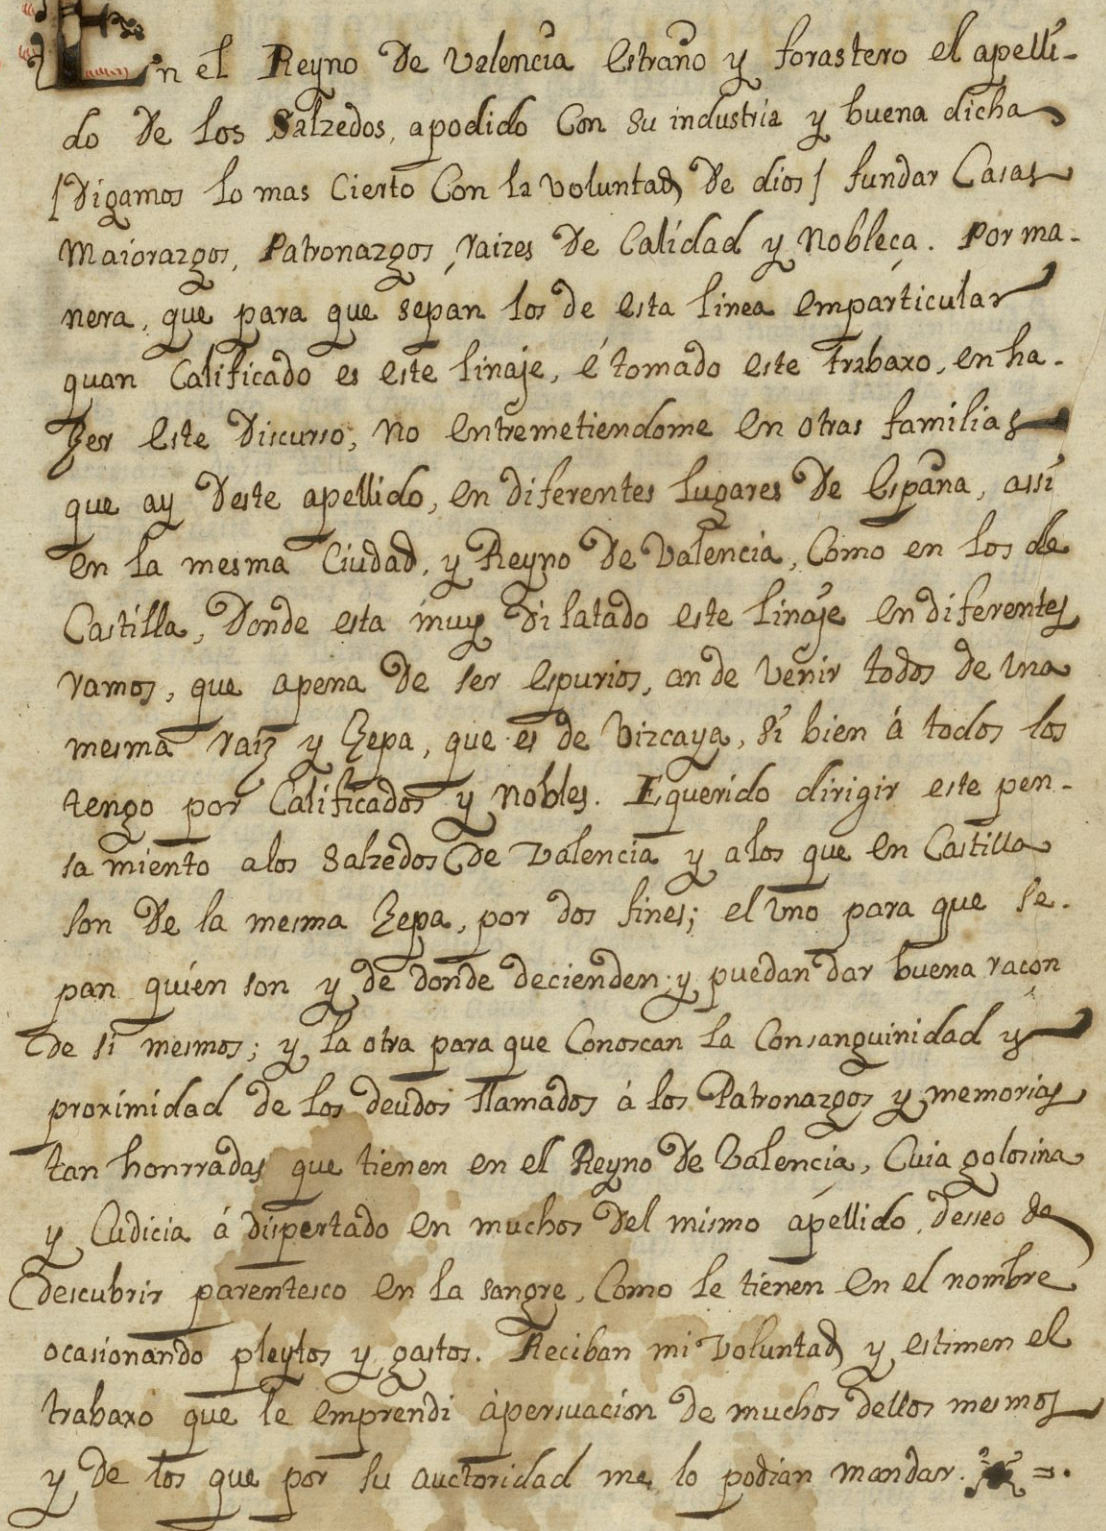 En el Reyno de Valencia estraño y forastero el apelli-
do de los Salzedos, apodido con su industria y buena dicha
/digamos lo mas cierto con la voluntad de dios/ fundar Casas
Maiorazgos, Patronazgos, raizes de Calidad y Nobleça. Por ma-
nera, que para que sepan los de esta linea emparticular
quan Calificado es este linaje, é tomado este trabaxo, en ha-
zer este discurso, no entremetiendome en otras familias
que ay deste apellido, en diferentes lugares de España, assi
en la mesma Ciudad, y Reyno de Valencia, Como en los de
Castilla, donde esta muy dilatado este linaje en diferentes
ramos, que apena de ser espurios, an de venir todos de una
mesma raiz y Zepa, que es de Vizcaya, si bien á todos los
tengo por Calificados y nobles. E querido dirigir este pen-
samiento a los Salzedos de Valencia y a los que en Castilla
son de la mesma Zepa, por dos fines; el uno para que se-
pan quien son y de donde decienden; y puedan dar buena raçon
de si mesmos; y la otra para que Conoscan la Consanguinidad y
proximidad de los deudos llamados á los Patronazgos y memorias
tan honrradas que tienen en el Reyno de Valencia, Cuia golosina
y Cudicia á dispertado en muchos del mismo apellido, desseo de
descubrir parentesco en la sangre, Como le tienen en el nombre
ocasionando pleytos y gastos. Reciban mi voluntad y estimen el
trabaxo que le emprendi á persuacion de muchos dellos mesmos
y de los que por su auctoridad me lo podian mandar.